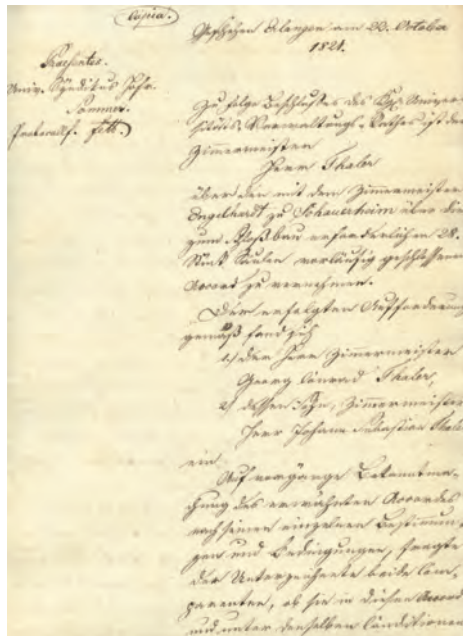 Copia.
Geschehen Erlangen am 23. October
1821.
Praesentes.
Univ. Syndicus Hofr.
Protocollf.
Zu folge Beschlusses des Kgl. Univer-
sitäts-Verwaltungs-Rathes ist der
Zimmermeister
Herr Thaler
über den mit dem Zimmermeister
Engelhardt zu Schauerheim über die
zum Schloßbau erforderlichen 28.
Stück Säulen vorläufig geschlossenen
Accord zu vernehmen.
Der erfolgten Aufforderung
gemäß fand sich
1) der Herr Zimmermeister
Georg Conrad Thaler,
2) dessen Sohn, Zimmermeister
Herr Johann Sebastian Thaler
ein.
Auf vorgänge Bekanntma-
chung des erwähnten Accordes
nach seinen einzelnen Bestimmun-
gen und Bedingungen, fragte
der Unterzeichnete beide Com-
parenten, ob sie in diesen Accord
und unter denselben Conditionen